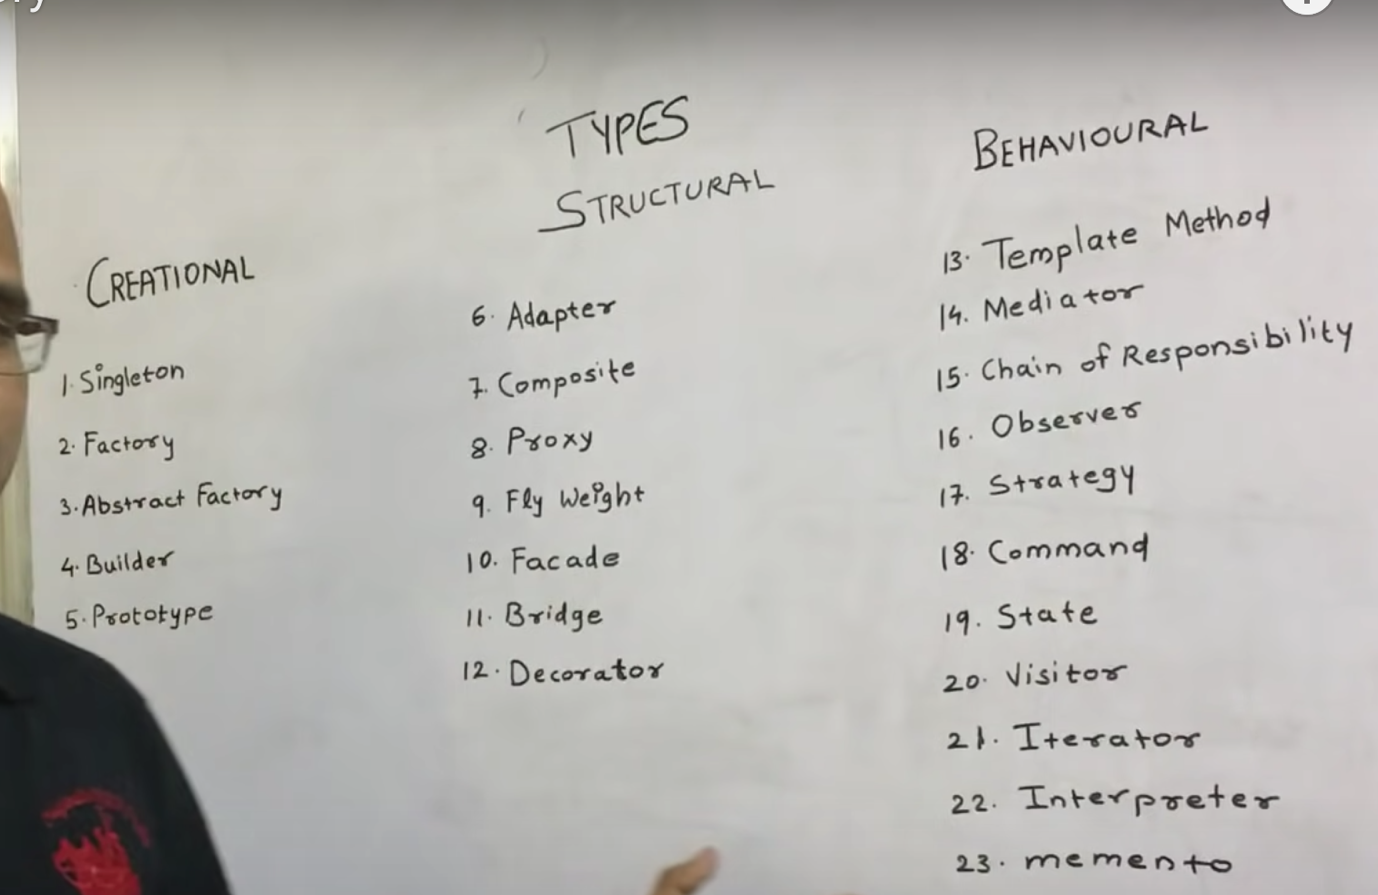 TYPES
CREATIONAL
1. Singleton
2. Factory
3. Abstract Factory
4. Builder
5. Prototype
STRUCTURAL
6. Adapter
7. Composite
8. Proxy
9. Fly Weight
10. Facade
11. Bridge
12. Decorator
BEHAVIOURAL
13. Template Method
14. Mediator
15. Chain of Responsibility
16. Observer
17. Strategy
18. Command
19. State
20. Visitor
21. Iterator
22. Interpreter
23. memento